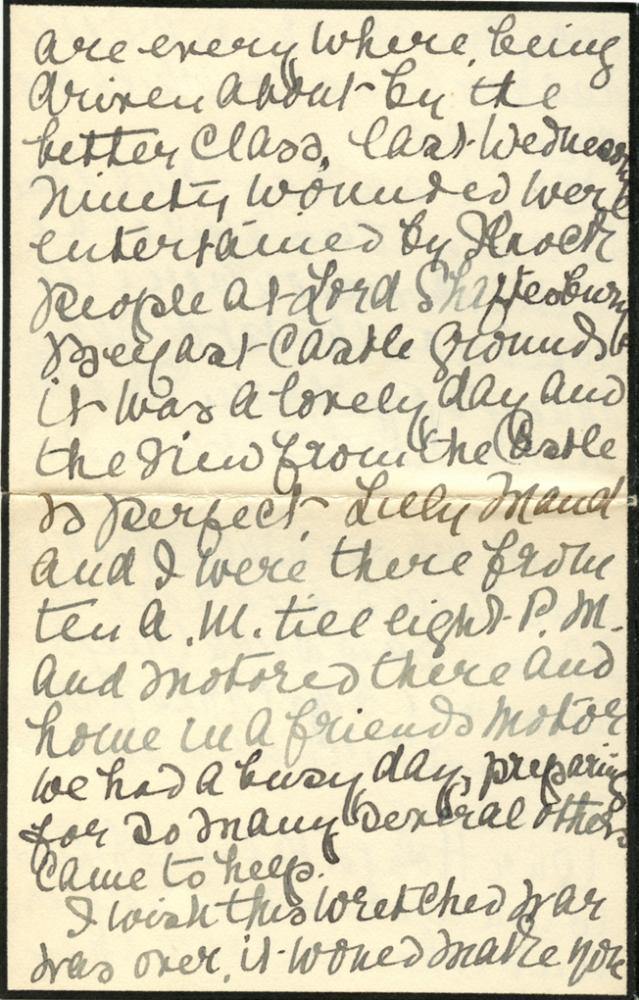 are every where, being
driven about by the
better class, last Wednesday
ninety wounded were
entertained by Knock
people at Lord Shaftesbury
Belfast Castle grounds
it was a lovely day and
the view from the Castle
is perfect, Lilly Maud
and I were there from
ten A.M. till eight P.M.
and motored there and
home in a friends motor
we had a busy day, preparing
for so many several others
came to help.
I wish this wretched war
was over, it would make you